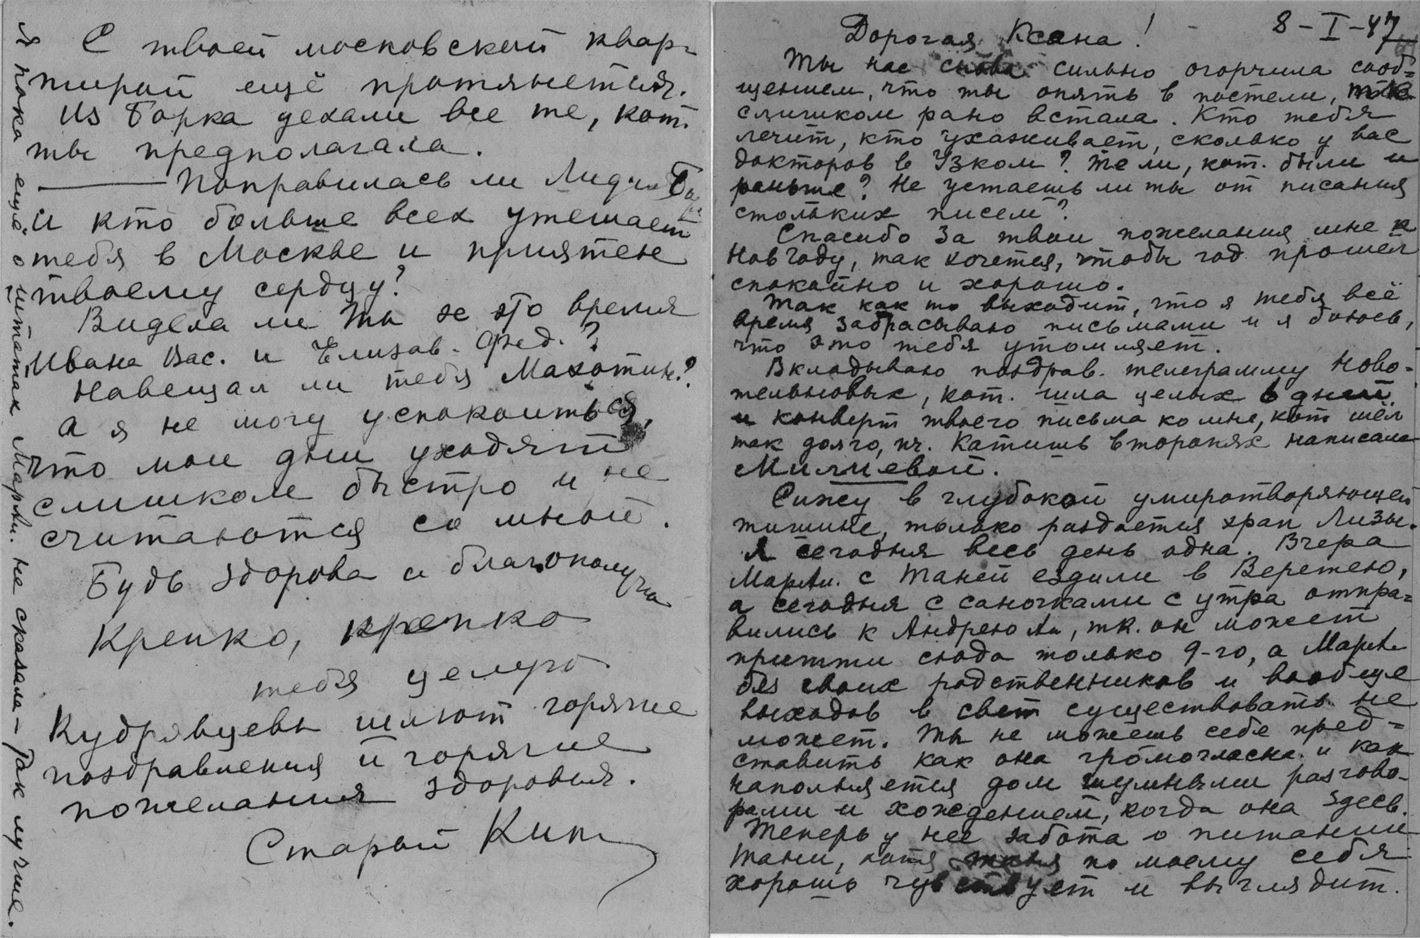 Дорогая Ксана! 8-I-47
Ты нас снова сильно огорчила сооб-
щением, что ты опять в постели,
слишком рано встала. Кто тебя
лечит, кто ухаживает, сколько у вас
докторов в Узком? Те ли, кот. были и
раньше? Не устаешь ли ты от писания
стольких писем?
Спасибо за твои пожелания мне к
Нов году, так хочется, чтобы год прошел
спокойно и хорошо.
Так как то выходит, что я тебя всё
время забрасываю письмами и я боюсь,
что это тебя утомляет.
Вкладываю поздрав. телеграмму Ново-
тельновых, кот. шла целых 6 дней
и конверт твоего письма ко мне, кот шёл
так долго, пч. Катишь второпях написала
Милиевой.
Сижу в глубокой умиротворяющей
тишине, только раздается храп Лизы.
Я сегодня весь день одна. Вчера
МарАл. с Таней ездили в Веретею,
а сегодня с саночками с утра отпра-
вились к Андрею, тк. он может
притти сюда только 9-го, а МарАл
без своих родственников и вообще
выходов в свет существовать не
может. Ты не можешь себе пред-
ставить как она громогласна и как
наполняется дом шумными разгово-
рами и хождением, когда она здесь.
Теперь у нее забота о питании
Тани, хотя Таня по моему себя
хорошо чувствует и выглядит.
С твоей московской квар-
тирой ещё протянется.
Из Борка уехали все те, кот.
ты предполагала.
Поправилась ли Лидия
И кто больше всех утешает
тебя в Москве и приятен
твоему сердцу?
Видела ли ты за это время
Ивана Вас. и Елизав. Фед.?
Навещал ли тебя Махотин?
А я не могу успокоиться,
что мои дни уходят
слишком быстро и не
считаются со мной.
Будь здорова и благополучна
Крепко, крепко
тебя целую
Кудрявцевы шлют горячие
поздравления и горячие
пожелания здоровья.
Старый Кит
Я пока ещё о штатах МарАл. не сказала – так лучше.